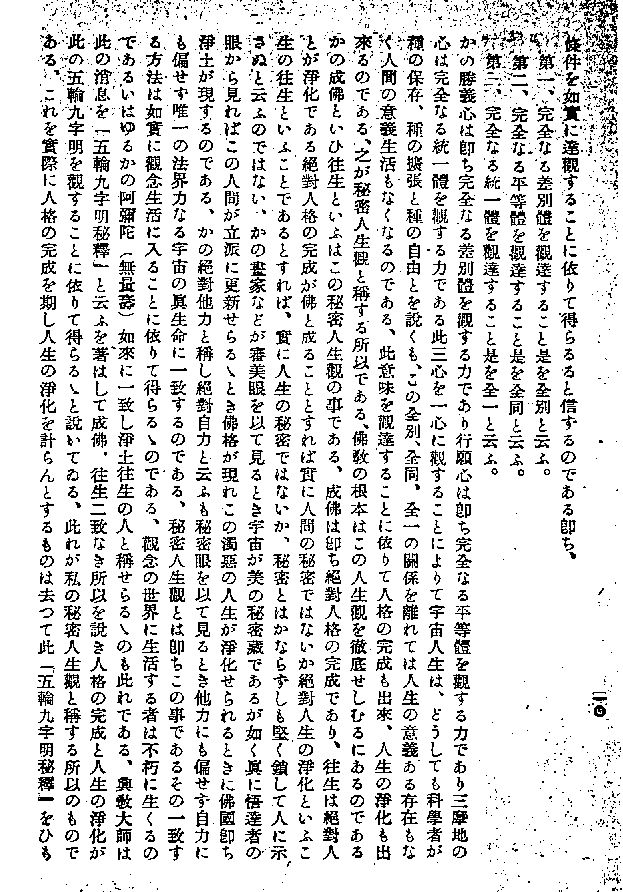 條件を如實に達觀することに依りて得らるると信ずるのである卽ち、
第一、完全なる差別體を觀達すること是を全別と云ふ。
第二、完全なる平等體を觀達すること是を全同と云ふ。
第三、完全なる統一體を觀達すること是を全一と云ふ。
かの勝義心は卽ち完全なる差別體を觀する力であり行願心は卽ち完全なる平等體を觀する力であり三摩地の
心は完全なる統一體を觀する力である此三心を一心に觀することによりて宇宙人生は、どうしても科學者が
種の保存、種の擴張と種の自由とを說くも、この全別、全同、全一の關係を離れては人生の意義ある存在もな
く人間の意義生活もなくなるのである、此意味を觀達することに依りて人格の完成も出來、人生の淨化も出
來るのである、之が秘密人生觀と稱する所以である、佛敎の根本はこの人生觀を徹底せしむるにあるのである
かの成佛といひ往生といふはこの秘密人生觀の事である、成佛は卽ち絕對人格の完成であり、往生は絕對人
とが淨化である絕對人格の完成が佛と成ることとすれば實に人間の秘密ではないか絕對人生の淨化といふこ
生の往生といふことであるとすれば、實に人生の秘密ではないか、秘密とはかならずしも堅く鎖して人に示
さぬと云ふのではない、かの畫家などが審美眼を以て見るとき宇宙が美の秘密藏であるが如く眞に悟達者の
眼から見ればこの人間が立派に更新せらるゝとき佛格が現れこの濁惡の人生が淨化せられるときに佛國卽ち
淨土が現するのである、かの絕對他力と稱し絕對自力と云ふも秘密眼を以て見るとき他力にも偏せず自力に
も偏せず唯一の法界力なる宇宙の眞生命に一致するのである、秘密人生觀とは卽ちこの事であるその一致す
る方法は如實に觀念生活に入ることに依りて得らるゝのである、觀念の世界に生活する者は不朽に生くるの
であるいはゆるかの阿彌陀(無量壽)如來に一致し淨土往生の人と稱せらるゝのも此れである、興敎大師は
此の消息を「五輪九字明秘釋」と云ふを著はして成佛、往生二致なき所以を說き人格の完成と人生の淨化が
此の五輪九字明を觀することに依りて得らるゝと說いてゐる、此れが私の秘密人生觀と稱する所以のもので
ある、これを實際に人格の完成を期し人生の淨化を計らんとするものは去つて此「五輪九字明秘釋」をひも